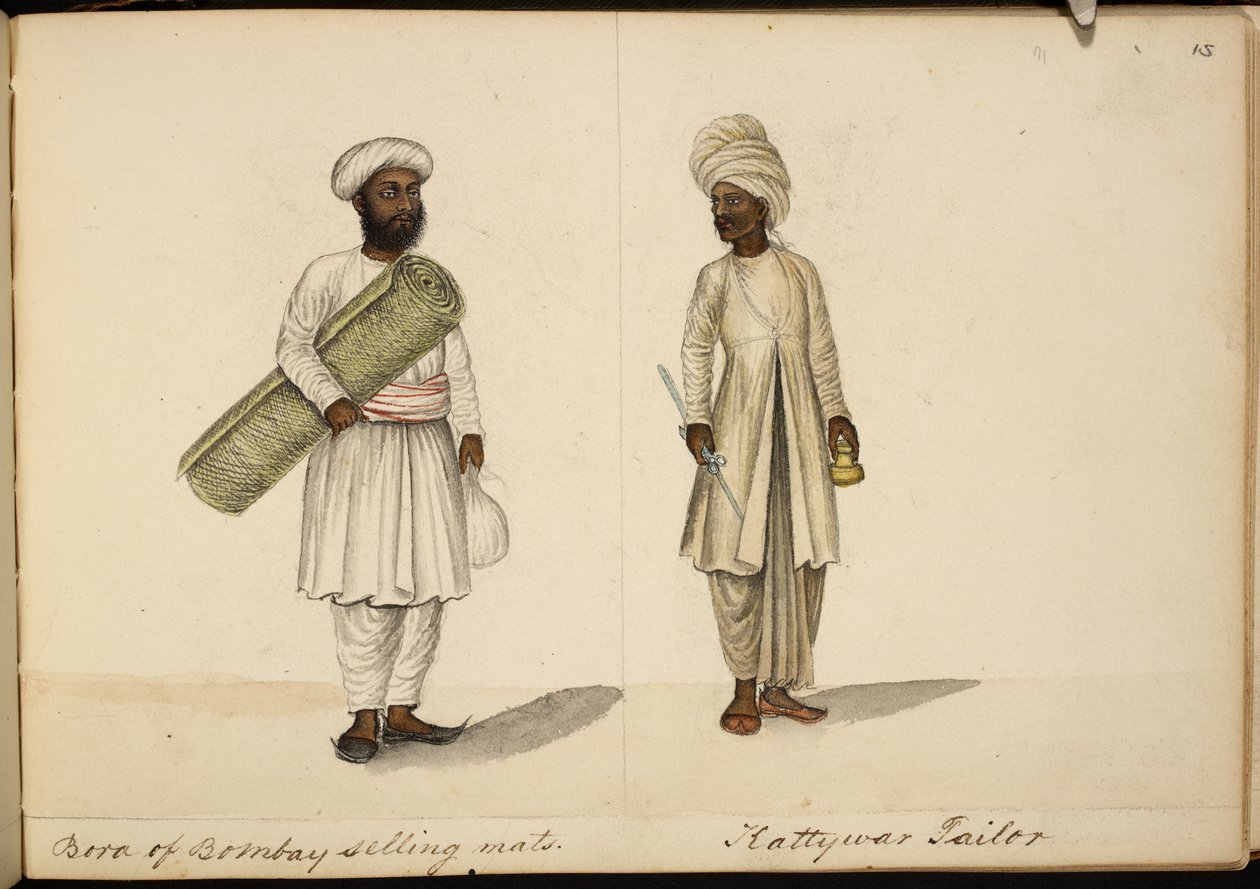 15
Bora of Bombay selling mats.
Kattywar Tailor